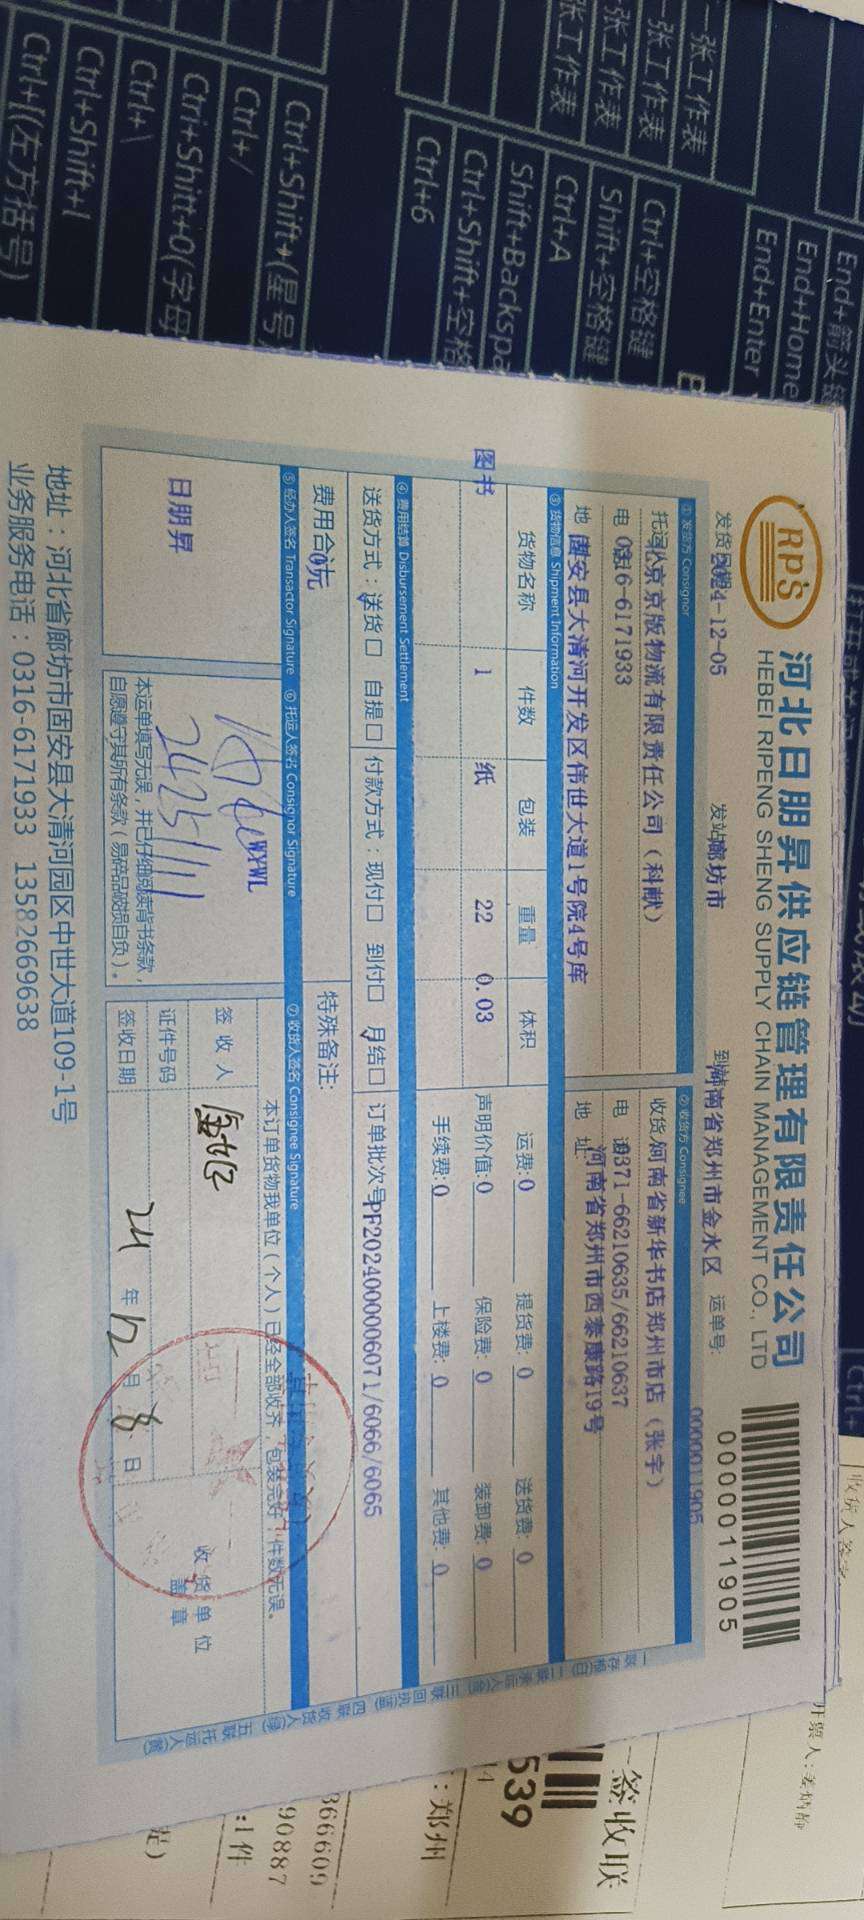 RPS
河北日朋昇供应链管理有限责任公司
HEBEI RIPENG SHENG SUPPLY CHAIN MANAGEMENT CO., LTD
0000011905
2024-12-05
廊坊市
河南省郑州市金水区
运单号:
0000011905
① 发货方 Consignor
北京京版物流有限责任公司（科献）
0316-6171933
固安县大清河开发区伟世大道1号院4号库
② 收货方 Consignee
河南省新华书店郑州市店（张宇）
0371-66210635/66210637
河南省郑州市西泰康路19号
③ 货物信息 Shipment Information
货物名称 件数 包装 重量 体积
图书 1 纸 22 0.03
运费:0 提货费: 0 送货费: 0
声明价值:0 保险费: 0 装卸费: 0
手续费:0 上楼费: 0 其他费: 0
④ 费用结算 Disbursement Settlement
送货方式：送货□ 自提□ 付款方式：现付□ 到付□ 月结□
订单批次号PF20240000006071/6066/6065
费用合 0元
特殊备注:
⑤ 经办人签名 Transactor Signature
⑥ 托运人签名 Consignor Signature
⑦ 收货人签名 Consignee Signature
日朋昇
WXWL
本运单填写无误，并已仔细阅读背书条款，
自愿遵守其所有条款（易碎品破损自负）。
本订单货物我单位（个人）已经全部收齐，包装完好，件数无误。
签 收 人
证件号码
签收日期
24 年 12 月 8 日
收货单位
盖 章
地址：河北省廊坊市固安县大清河园区中世大道109-1号
业务服务电话：0316-6171933 13582669638
一联存根(白) 二联承运人(红) 三联回执(蓝) 四联收货人(绿) 五联托运人(黄)
一张工作表
一张工作表
张工作表
张工作表
End+箭头键
End+Home
End+Enter
Ctrl+空格键
Shift+空格键
Ctrl+A
Shift+Backspa
Ctrl+Shift+空格
Ctrl+6
Ctrl+Shift+(星号)
Ctrl+/
Ctrl+Shift+O(字母
Ctrl+\
Ctrl+Shift+|
Ctrl+[(左方括号)
Ctrl+
收货人签字
签收联
539
：郑州
366609
90887
:1件